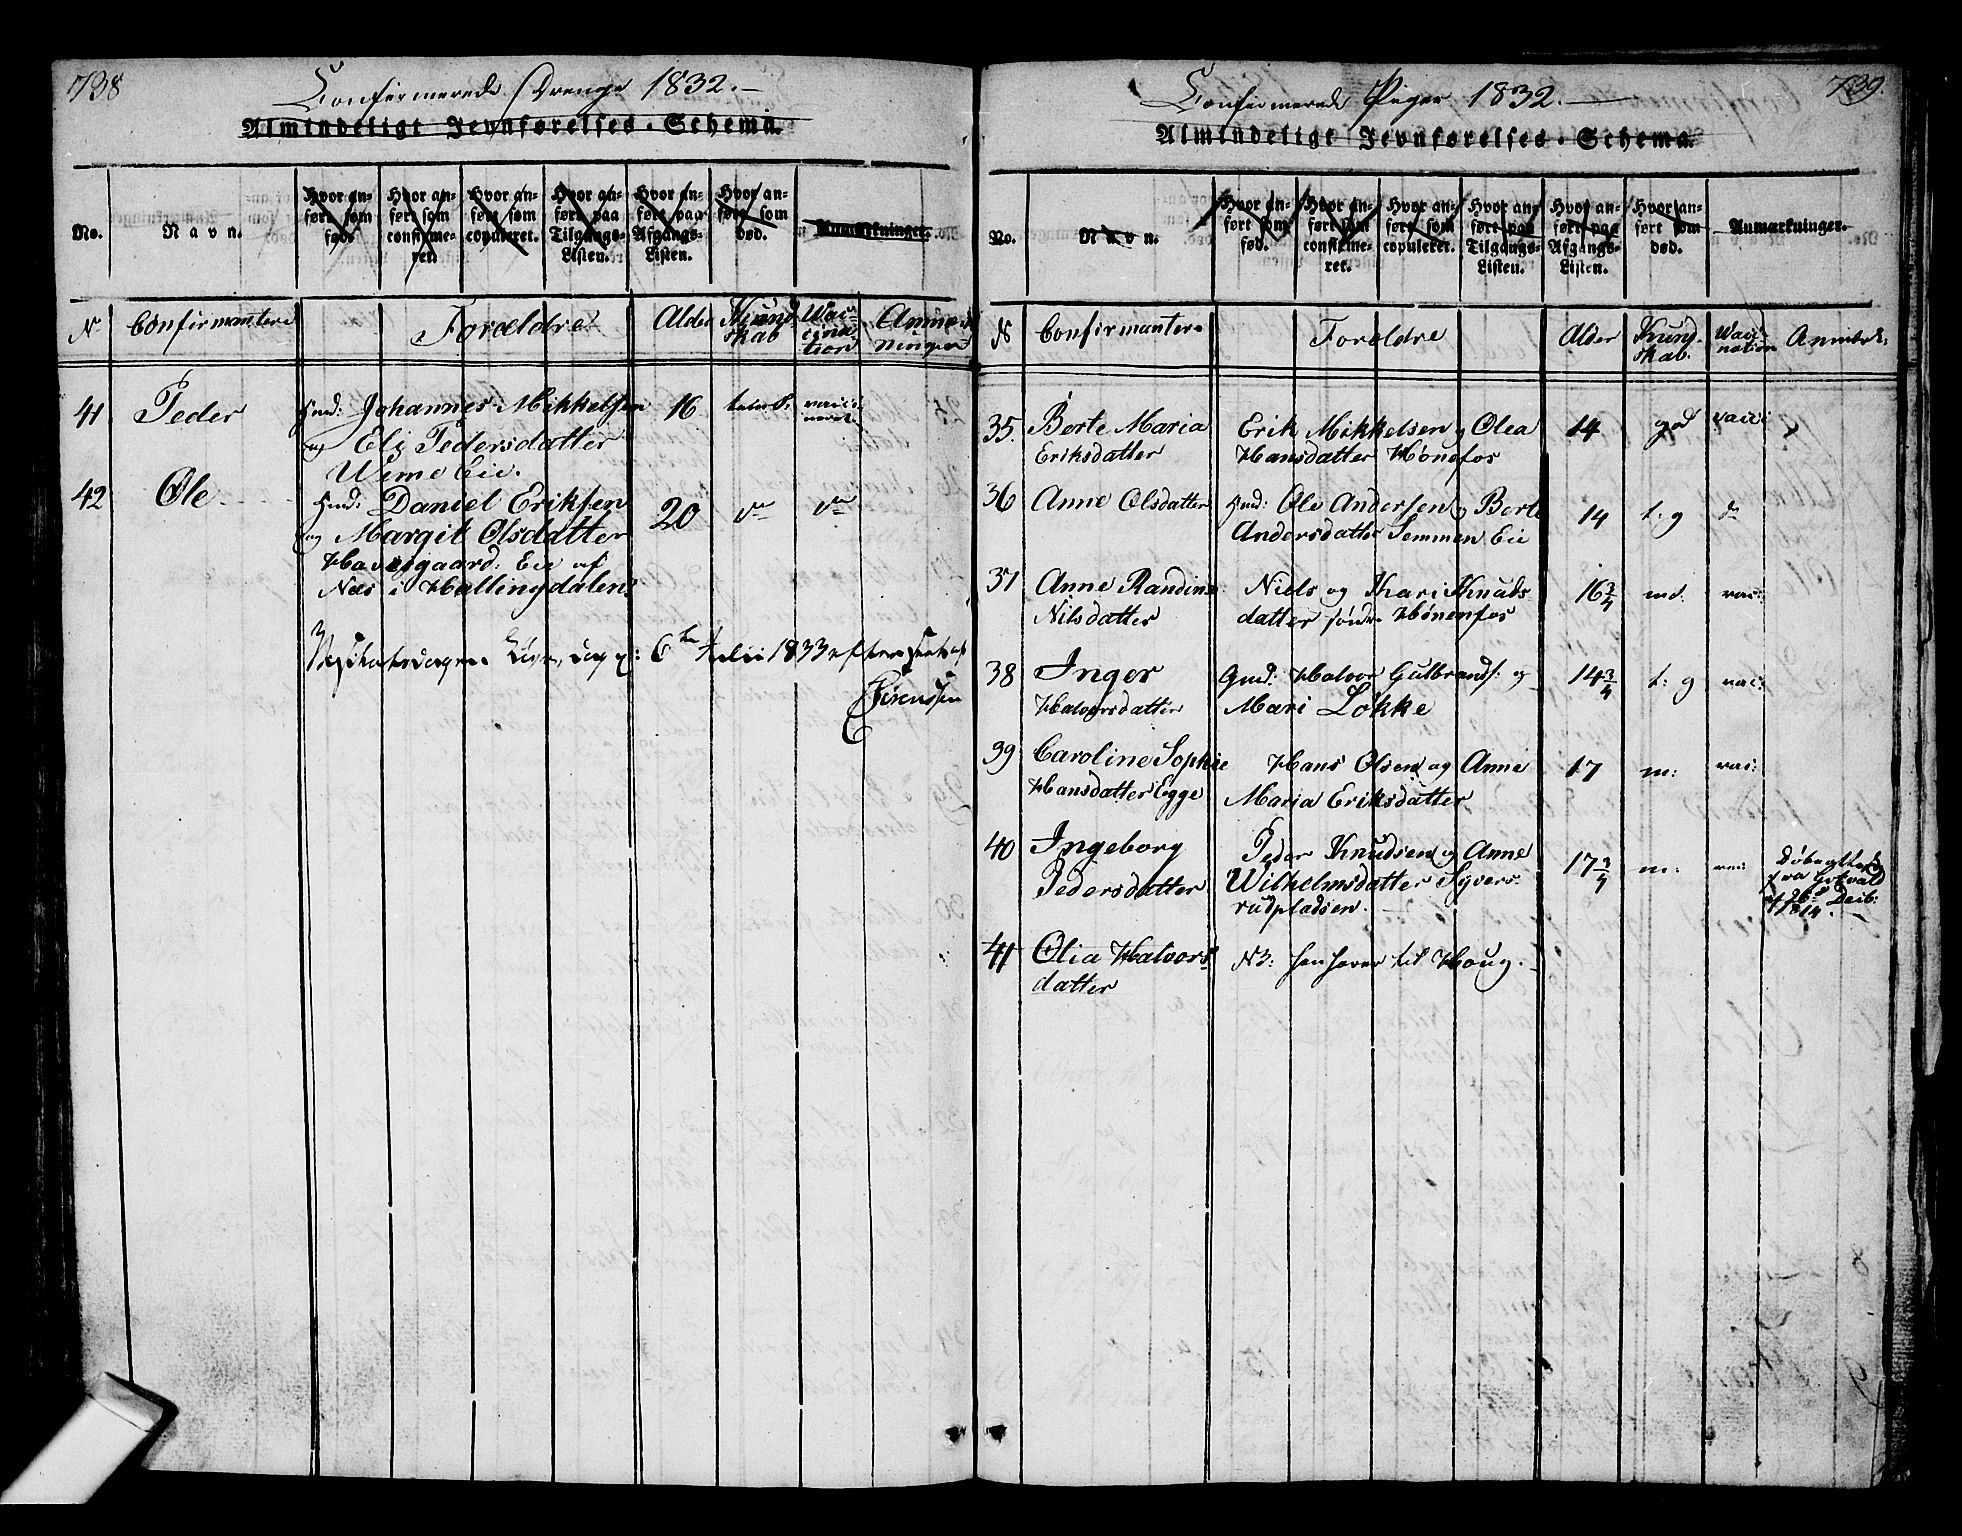 738
Confirmerede Drenge 1832.
Almindeligt Jevnførelses-Schema.
No.
Navn.
Hvor anført som født
Hvor anført som confirmeret.
Hvor anført som copuleret.
Hvor anført paa Tilgangs-Listen.
Hvor anført paa Afgangs-Listen.
Hvor anført som død.
Anmærkninger.
N Confirmantere Forældre Alder Kundskab Vaccination Anmærkninger
41 Peder Huusmd: Johannes Mikkelsen 16
og Eli Pedersdatter
Veme Eie.
42 Ole Huusmd: Daniel Eriksen 20 do do
og Margit Olsdatter
Havesgaard: Eie af
Næs i Hallingdalen.
6te Julii 1833
Sørenssen
739.
Confirmerede Piger 1832.
Almindeligt Jevnførelses-Schema.
No.
Navn.
Hvor anført som fød.
Hvor anført som confirmeret.
Hvor anført som copuleret.
Hvor anført paa Tilgangs-Listen.
Hvor anført paa Afgangs-Listen.
Hvor anført som død.
Anmærkninger.
N Confirmantere Forældre Alder Kundskab. Vaccination Anmærk:
35. Berte Maria Erik Mikkelsen og Olea 14 god vacci
Eriksdatter Hansdatter Hønefos
36 Anne Olsdatter Huusmd: Ole Andersen og Berte 14 t: g do
Andersdatter Semmen Eie
37 Anne Randine Niels og Kari Knuds- 16 3/4 md: vac:
Nilsdatter datter søndre Hønenfos
38 Inger Gmd: Halvor Gulbrands: og 14 3/4 t: g vac:
Halvorsdatter Mari Løkke
39 Caroline Sophie Hans Olsen og Anne 17 m: vac:
Hansdatter Egge Maria Eriksdatter
40 Ingeborg Peder Knudsen og Anne 17 3/4 m: vac: Døbeattest
Pedersdatter Wilhelmsdatter Syvers- fra
rudpladsen. 26 Decb:
1814.
41 Olia Halvors NB: henhører til Houg.
datter